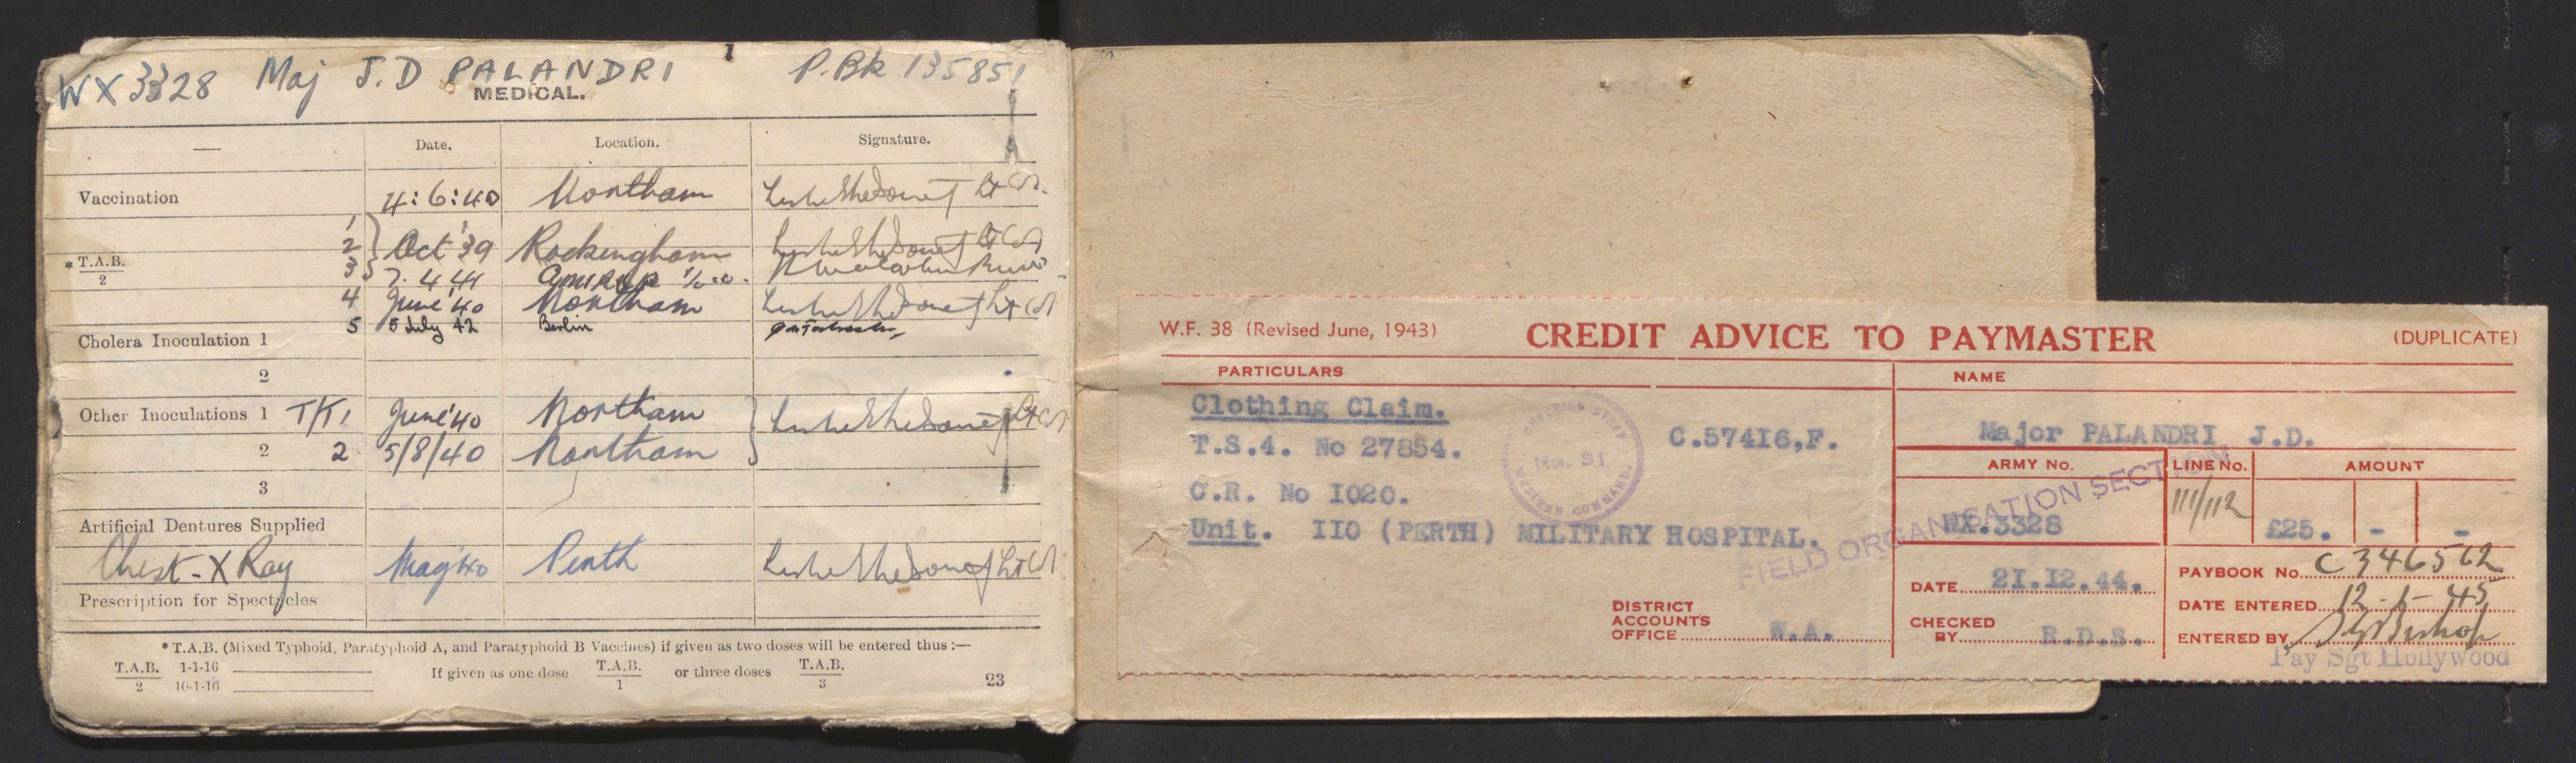 WX3328 Maj J.D PALANDRI P.Bk 135851
MEDICAL.
— Date. Location. Signature.
Vaccination 4:6:40 Northam Lt Col.
1
2 Oct '39 Rockingham Lt Col
* T.A.B. / 2
3 7.4.41
4 June '40 Northam Lt Col
5 5 July 42 Berlin
Cholera Inoculation 1
2
Other Inoculations 1 T/T 1 June '40 Northam Lt Col
2 2 5/8/40 Northam
3
Artificial Dentures Supplied
Chest - X Ray May '40 Perth Lt Col.
Prescription for Spectacles
* T.A.B. (Mixed Typhoid, Paratyphoid A, and Paratyphoid B Vaccines) if given as two doses will be entered thus :—
T.A.B. / 2 1-1-16 10-1-16 If given as one dose T.A.B. / 1 or three doses T.A.B. / 3
23
W.F. 38 (Revised June, 1943) CREDIT ADVICE TO PAYMASTER (DUPLICATE)
PARTICULARS NAME
Clothing Claim.
T.S.4. No 27854. C.57416,F.
C.R. No 1020.
Unit. 110 (PERTH) MILITARY HOSPITAL.
DISTRICT
ACCOUNTS
OFFICE W.A.
Major PALANDRI J.D.
ARMY No. LINE No. AMOUNT
WX.3328 111/112 £25. - -
FIELD ORGANISATION SECTION
DATE 21.12.44.
CHECKED
BY R.D.S.
PAYBOOK No. C346562
DATE ENTERED 12-5-45
ENTERED BY Sgt Bishop
Pay Sgt Hollywood